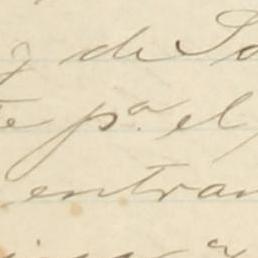 y de So
te pª. el
entran